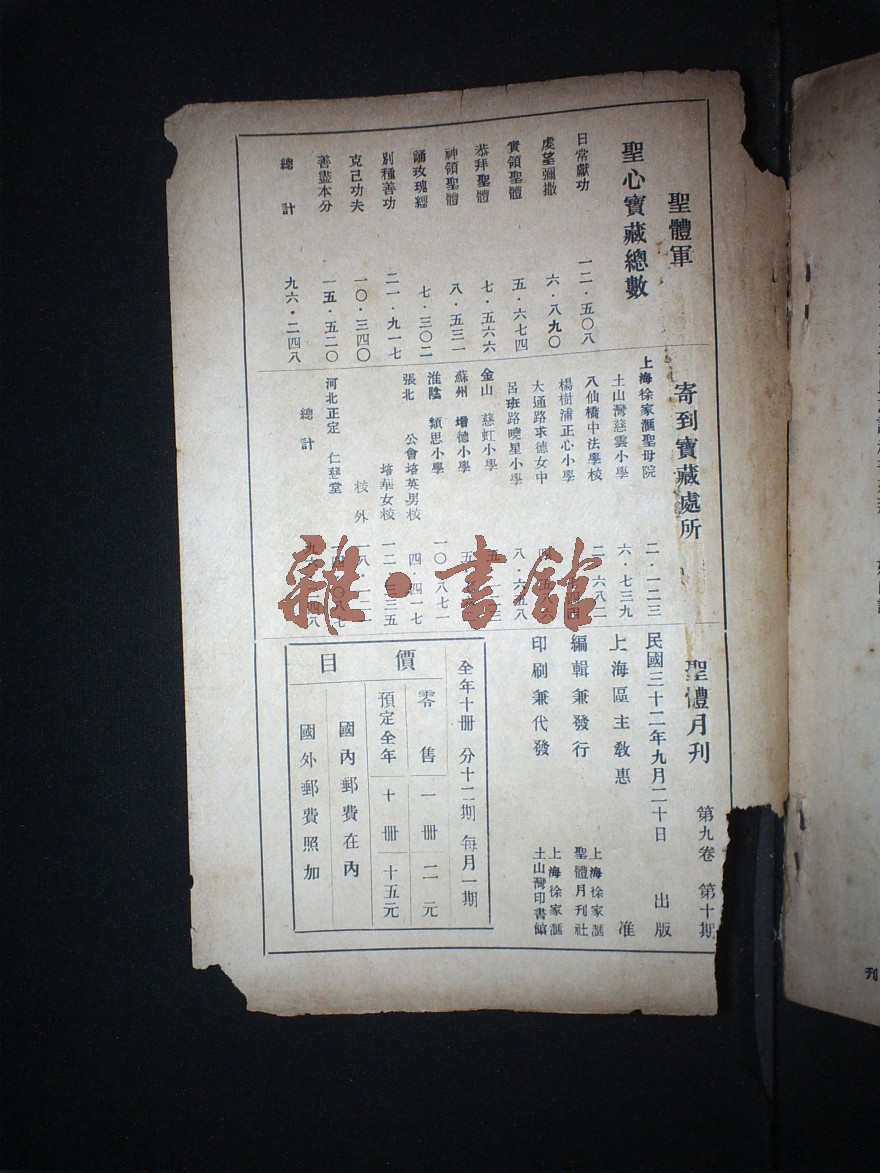 聖體軍
聖心寶藏總數
日常獻功 一二・五〇八
虔望彌撒 六・八九〇
實領聖體 五・六七四
恭拜聖體 七・五六六
神領聖體 八・五三一
誦玫瑰經 七・三〇二
別種善功 二一・九一七
克己功夫 一〇・三四〇
善盡本分 一五・五二〇
總計 九六・二四八
寄到寶藏處所
上海徐家滙聖母院 二・一二三
土山灣慈雲小學 六・七三九
八仙橋中法學校 二・六八二
楊樹浦正心小學
大通路求德女中
呂班路曉星小學 八・六五八
金山 慈虹小學
蘇州 增德小學
淮陰 類思小學 一〇・八七一
張北 公會培英男校 四・四一七
培華女校 一二・三三五
校外
河北正定 仁慈堂
總計
聖體月刊 第九卷 第十期
民國三十二年九月二十日 出版
上海區主教惠 准
編輯兼發行 上海徐家滙
聖體月刊社
印刷兼代發 上海徐家滙
土山灣印書館
全年十冊 分十二期 每月一期
價目
零售 一冊 二元
預定全年 十冊 十五元
國內郵費在內
國外郵費照加
雜・書館
刊